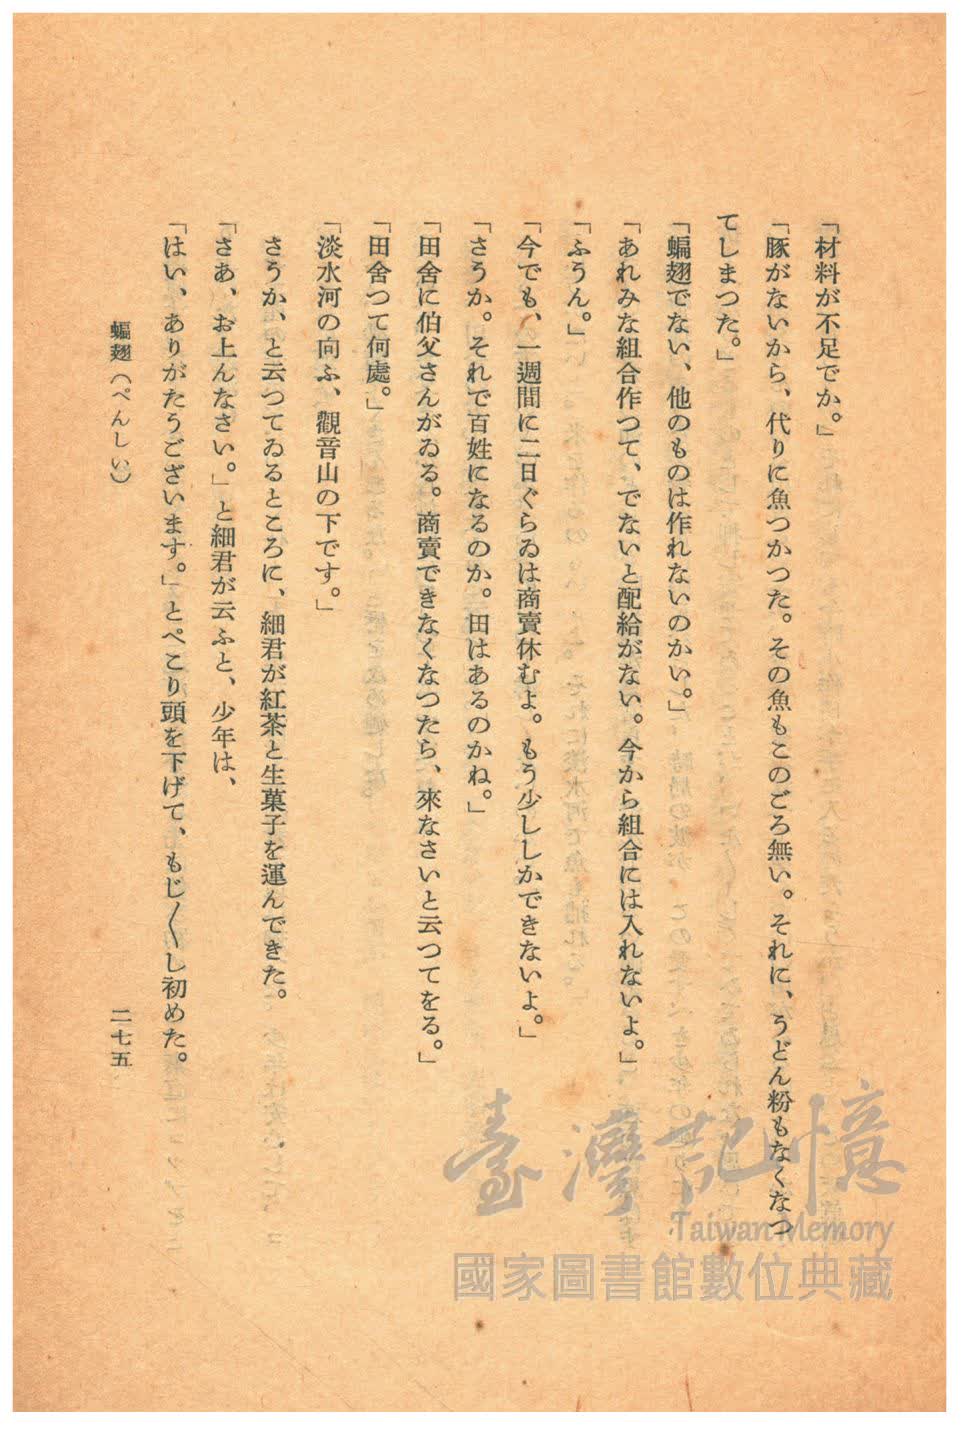 「材料が不足でか。」
「豚がないから、代りに魚つかつた。その魚もこのごろ無い。それに、うどん粉もなくなつ
てしまつた。」
「蝙翅でない、他のものは作れないのかい。」
「あれみな組合作つて、でないと配給がない。今から組合には入れないよ。」
「ふうん。」
「今でも、一週間に二日ぐらゐは商賣休むよ。もう少ししかできないよ。」
「さうか。それで百姓になるのか。田はあるのかね。」
「田舍に伯父さんがゐる。商賣できなくなつたら、來なさいと云つてをる。」
「田舍つて何處。」
「淡水河の向ふ、觀音山の下です。」
さうか、と云つてゐるところに、細君が紅茶と生菓子を運んできた。
「さあ、お上んなさい。」と細君が云ふと、少年は、
「はい、ありがたうございます。」とぺこり頭を下げて、もじ〱し初めた。
蝙翅（ぺんしい）
二七五
臺灣記憶
Taiwan Memory
國家圖書館數位典藏